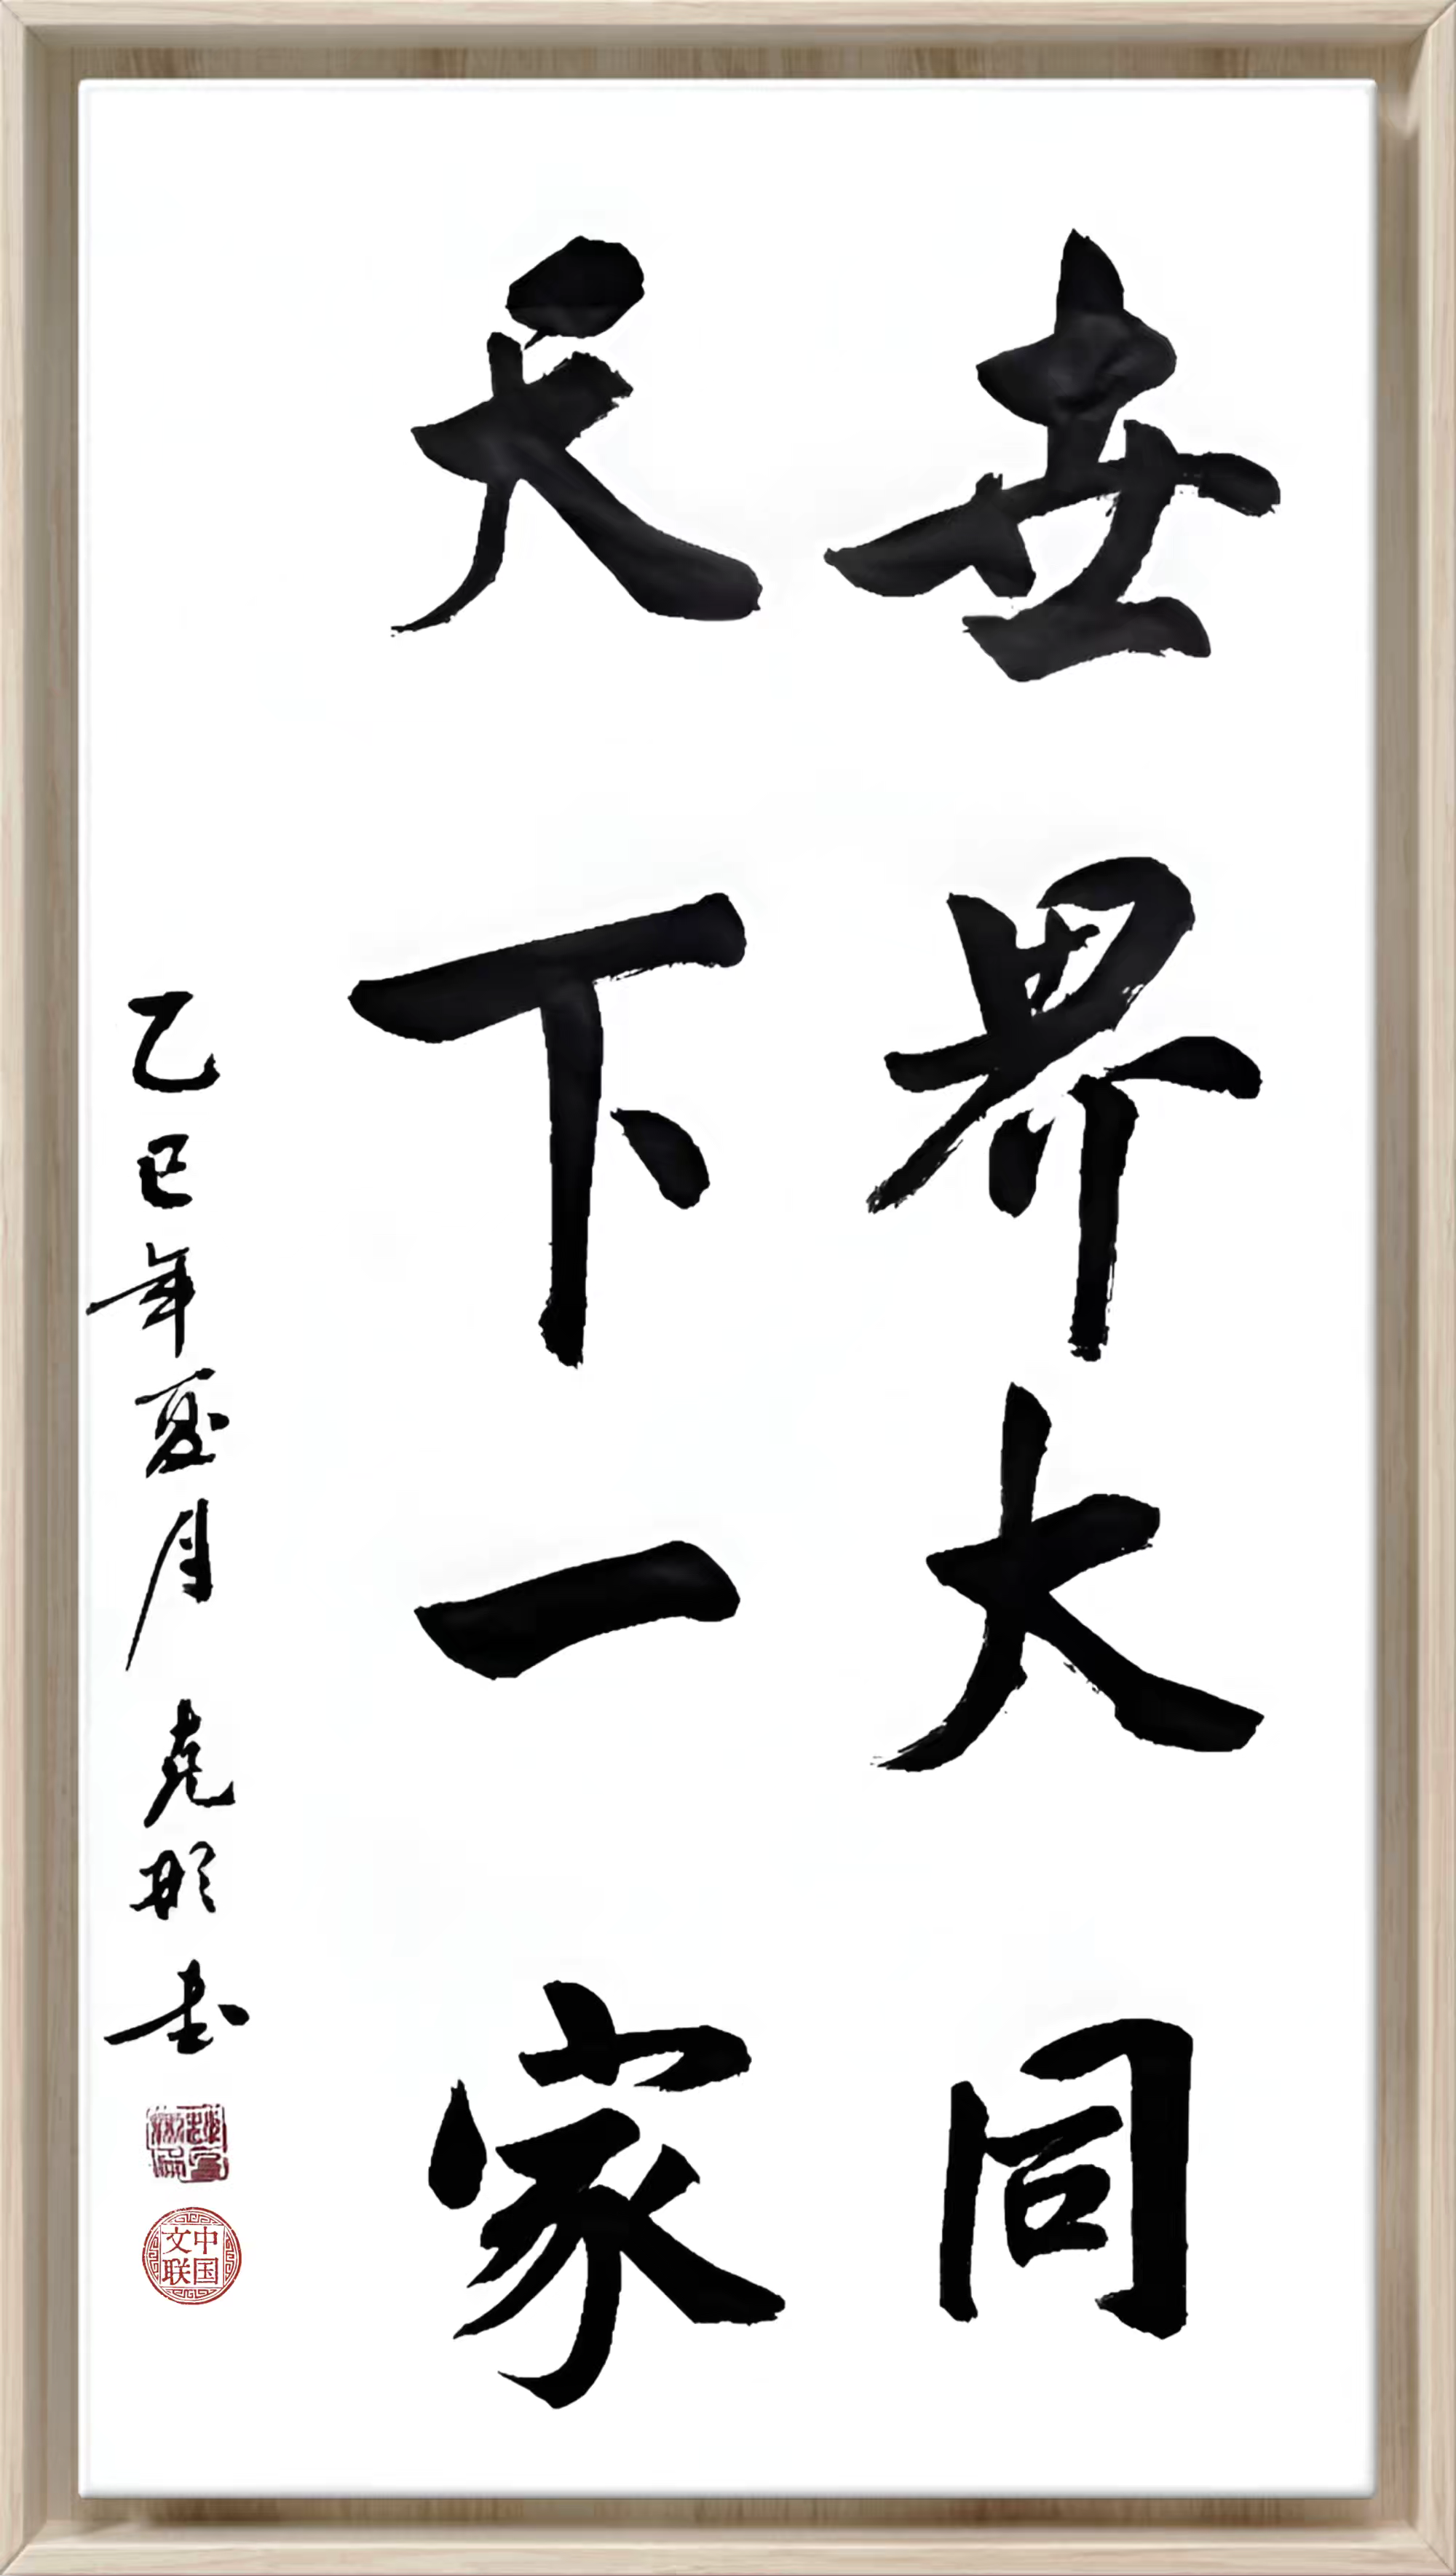 世界大同
天下一家
乙巳年夏月 克明书
中国文联